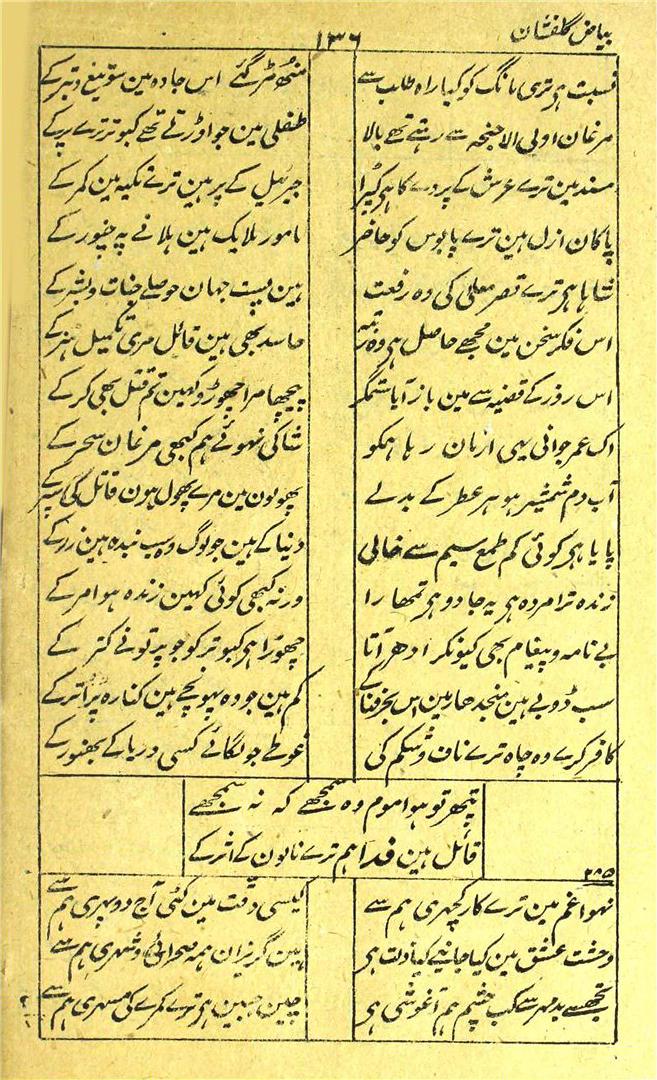 بیاض گلفشان
۱۳۶
نسبت ہی تری مانگ کو کیا راہ طلب سے منھ مڑ گئے اس جادہ مین سو تیغ و تبر کے
مرغان اولی الاجنحہ سے رہتے تھے بالا طفلی مین جو اوڑتے تھے کبوتر ترے پر کے
مسند مین ترے عرش کے پردے کا ہی کپڑا جبرئیل کے پر ہین ترے تکیہ مین کمر کے
پاکان ازل ہین ترے پابوس کو حاضر مامور ملایک ہین ہلانے پہ چنور کے
شاہا ہی ترے قصر معلی کی وہ رفعت ہین پست جہان حوصلے جنات و بشر کے
اس فکر سخن مین مجھے حاصل ہی وہ رتبہ حاسد بھی ہین قائل مری تکمیل ہنر کے
اس روز کے قضیہ سے مین باز آیا ستمگر پیچھا مرا چھوڑو کہین تم قتل بھی کر کے
اک عمر جوانی یہی ارمان رہا ہمکو شاکی نہوئے ہم کبھی مرغان سحر کے
آب دم شمشیر ہو ہر عطر کے بدلے پھولون مین مرے پھول ہون قاتل کی سپر کے
پایا ہی کوئی کم طمع سیم سے خالی دنیا کے ہین جو لوگ وہ سب بندہ ہین زر کے
زندہ ترا مردہ ہی یہ جادو ہی تمھارا ورنہ کبھی کوئی کہین زندہ ہوا مر کے
بے نامہ و پیغام بھی کیونکر ادھر آتا چھوڑا ہی کبوتر کو جو پر تونے کتر کے
سب ڈوبے ہین منجدھار مین اس بحر فنا کے کم ہین جو وہ پہونچے ہین کنارہ پر اتر کے
کافر کرے وہ چاہ ترے ناف و شکم کی غوطے جو لگائے کسی دریا کے بھنور کے
پتھر تو ہوا موم وہ سمجھے کہ نہ سمجھے
قائل ہین فدا ہم ترے نالون کے اثر کے
۲۸۵
نہوا غم مین ترے کار کچہری ہم سے کیسی دقت مین کٹی آج دوپہری ہم سے
وحشت عشق مین کیا جانیے کیا ذلت ہی ہین گریزان ہمہ صحرائی و شہری ہم سے
تجھسے بدمہر سے کب چشم ہم آغوشی ہی چین جبین ہی ترے کمرے کی مسہری ہم سے